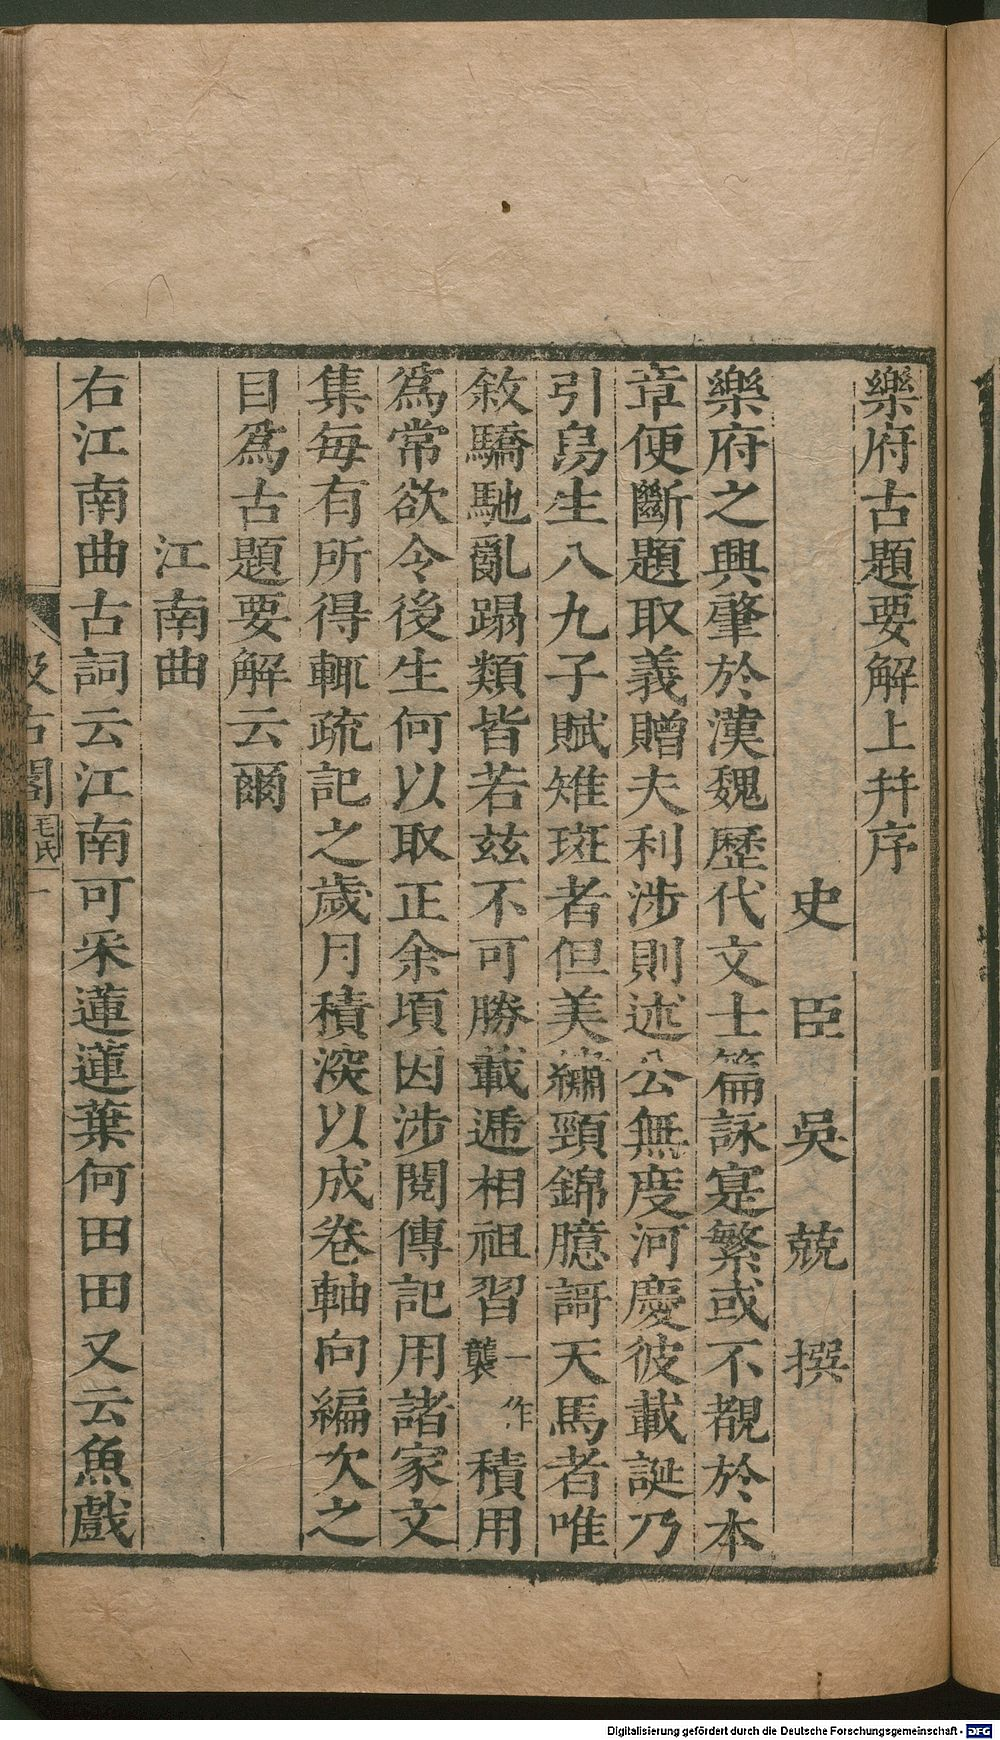 樂府古題要解上幷序
史臣吳兢撰
樂府之興肇於漢魏歷代文士篇詠寔繁或不覩於本
章便斷題取義贈夫利涉則述公無度河慶彼載誕乃
引烏生八九子賦雉斑者但美繡頸錦臆謌天馬者唯
敘驕馳亂蹋類皆若玆不可勝載遞相祖習一作襲積用
爲常欲令後生何以取正余頃因涉閱傳記用諸家文
集每有所得輒疏記之歲月積深以成卷軸向編次之
目爲古題要解云爾
江南曲
右江南曲古詞云江南可采蓮蓮葉何田田又云魚戲
汲古閣
毛氏
一
Digitalisierung gefördert durch die Deutsche Forschungsgemeinschaft - DFG